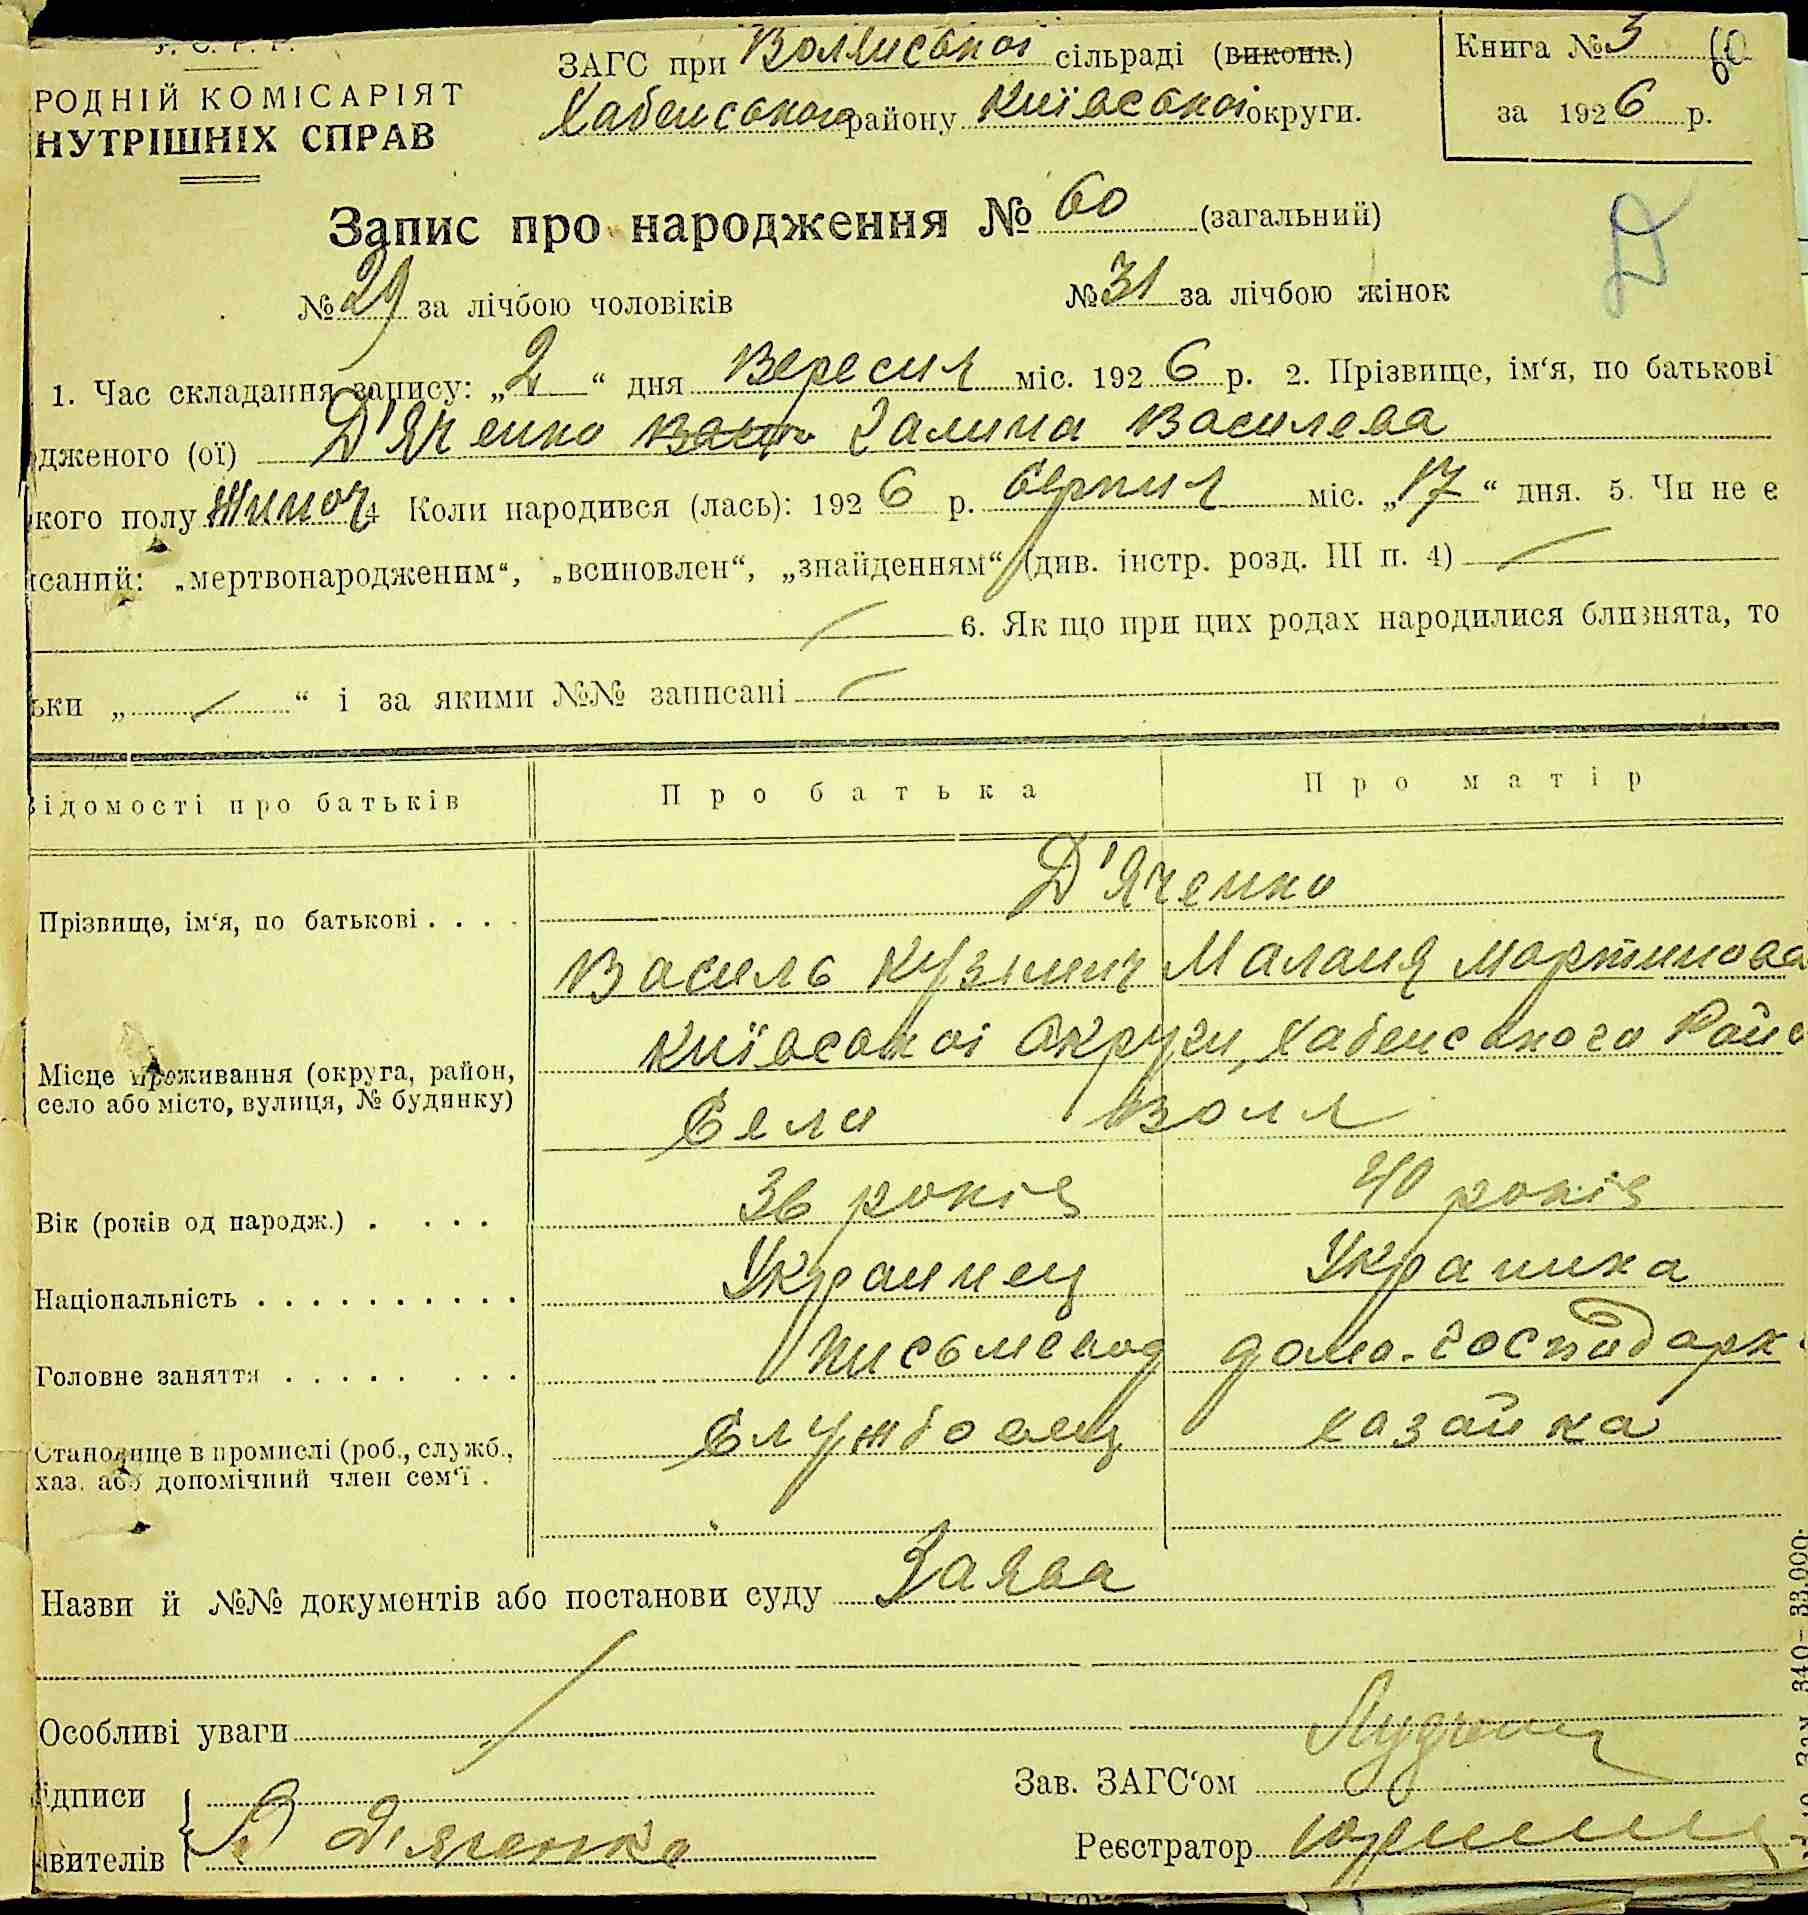 У. С. Р. Р.
РОДНІЙ КОМІСАРІЯТ
НУТРІШНІХ СПРАВ
ЗАГС при Волянської сільраді (виконк.)
Хабенського району Київської округи.
Книга № 3 60
за 1926 р.
Запис про народження № 60 (загальний)
Д
№ 29 за лічбою чоловіків № 31 за лічбою жінок
1. Час складання запису: „2“ дня Вересня міс. 1926 р. 2. Прізвище, ім‘я, по батькові
дженого (ої) Д'Яченко Галина Василева
кого полу Жиноч 4 Коли народився (лась): 1926 р. Серпня міс. „17“ дня. 5. Чи не є
исаний: „мертвонародженим“, „всиновлен“, „знайденням“ (див. інстр. розд. III п. 4)
6. Як що при цих родах народилися близнята, то
ьки „ “ і за якими №№ записані
Відомості про батьків Про батька Про матір
Прізвище, ім‘я, по батькові . . . . Д'Яченко
Василь Кузьмич Маланя Мартинова
Місце проживання (округа, район,
село або місто, вулиця, № будинку)
Київської Округи, Хабенського Райо
Села Воля
Вік (років од народж.) . . . . 36 років 40 років
Національність . . . . . . . . . . . Украинец Украинка
Головне заняття . . . . . . . . Письмовод домо-господарк.
Становище в промислі (роб., служб.,
хаз. або допомічний член сем‘ї .
Службовец хазайка
Назви й №№ документів або постанови суду Заява
Особливі уваги
ідписи
явителів Дяченко
Зав. ЗАГС‘ом
Реєстратор
Зам. 340—33.000.